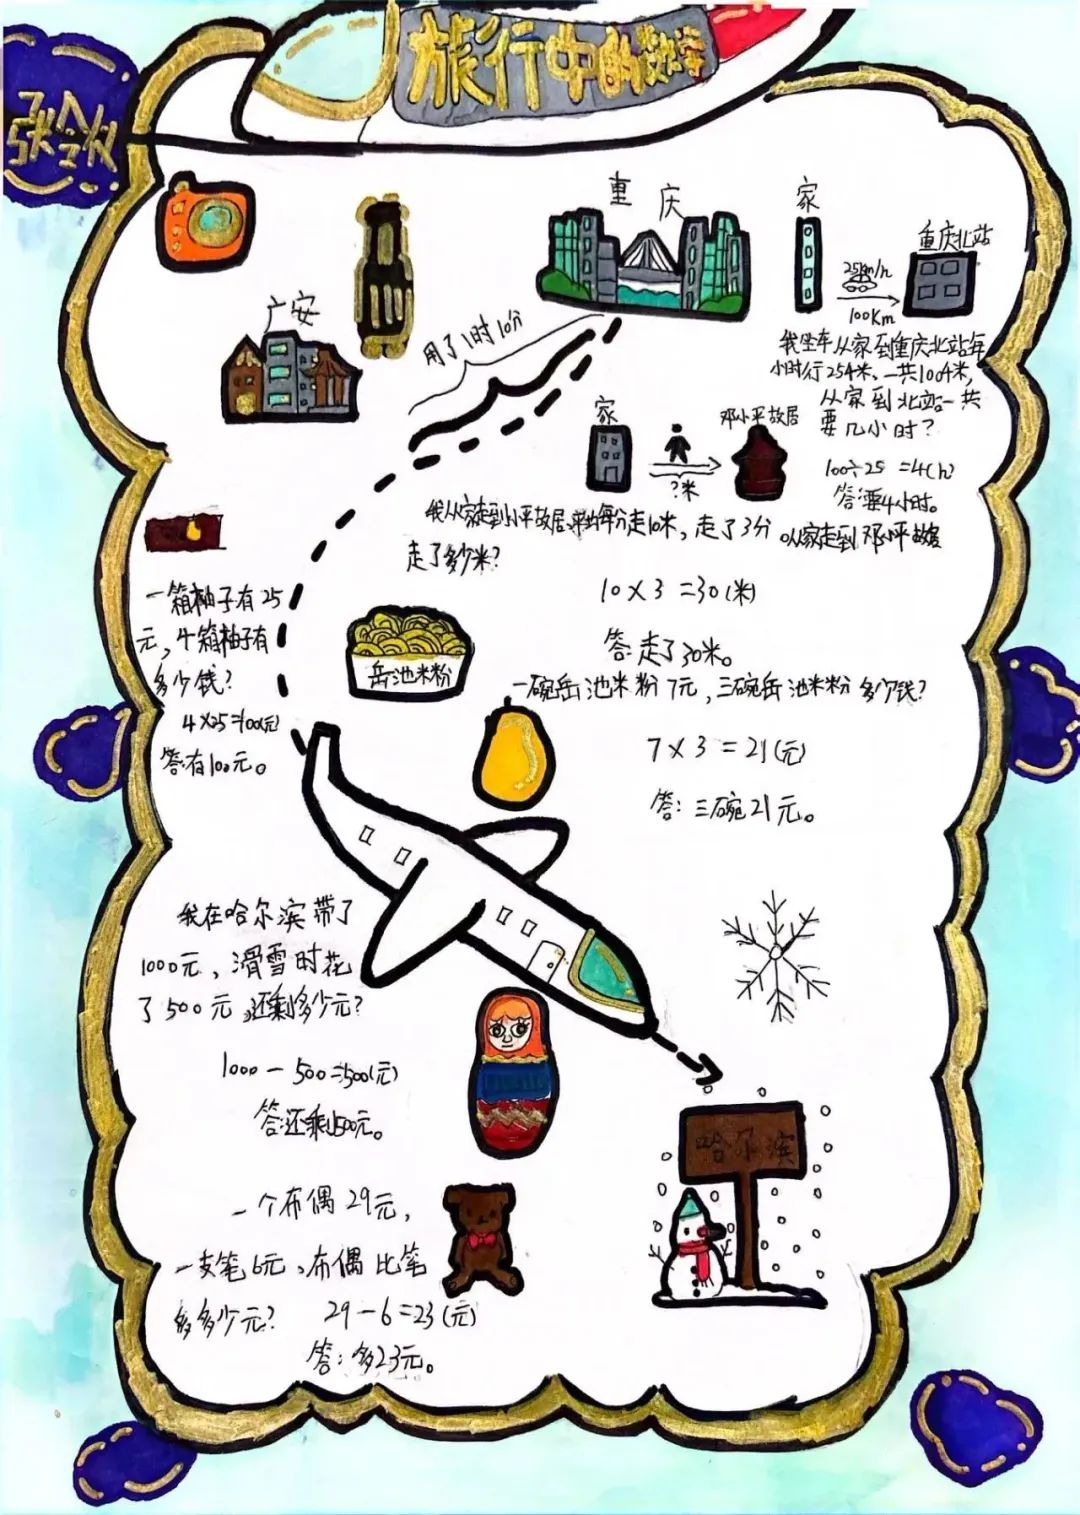 旅行中的数学
重庆
家
重庆北站
25km/h
100Km
广安
用了1时10分
我坐车从家到重庆北站每
小时行254米、一共1004米,
从家到北站一共
要几小时?
100÷25=4(h)
答:要4小时。
家
邓小平故居
?米
我从家走到小平故居,每分走10米,走了3分。从家走到邓小平故居
走了多少米?
10×3=30(米)
答:走了30米。
一箱柚子有25
元,4箱柚子有
多少钱?
4×25=100(元)
答:有100元。
岳池米粉
一碗岳池米粉7元,三碗岳池米粉多少钱?
7×3=21(元)
答:三碗21元。
我在哈尔滨带了
1000元,滑雪时花
了500元,还剩多少元?
1000-500=500(元)
答:还剩500元。
哈尔滨
一个布偶29元,
一支笔6元、布偶比笔
多多少元?
29-6=23(元)
答:多23元。